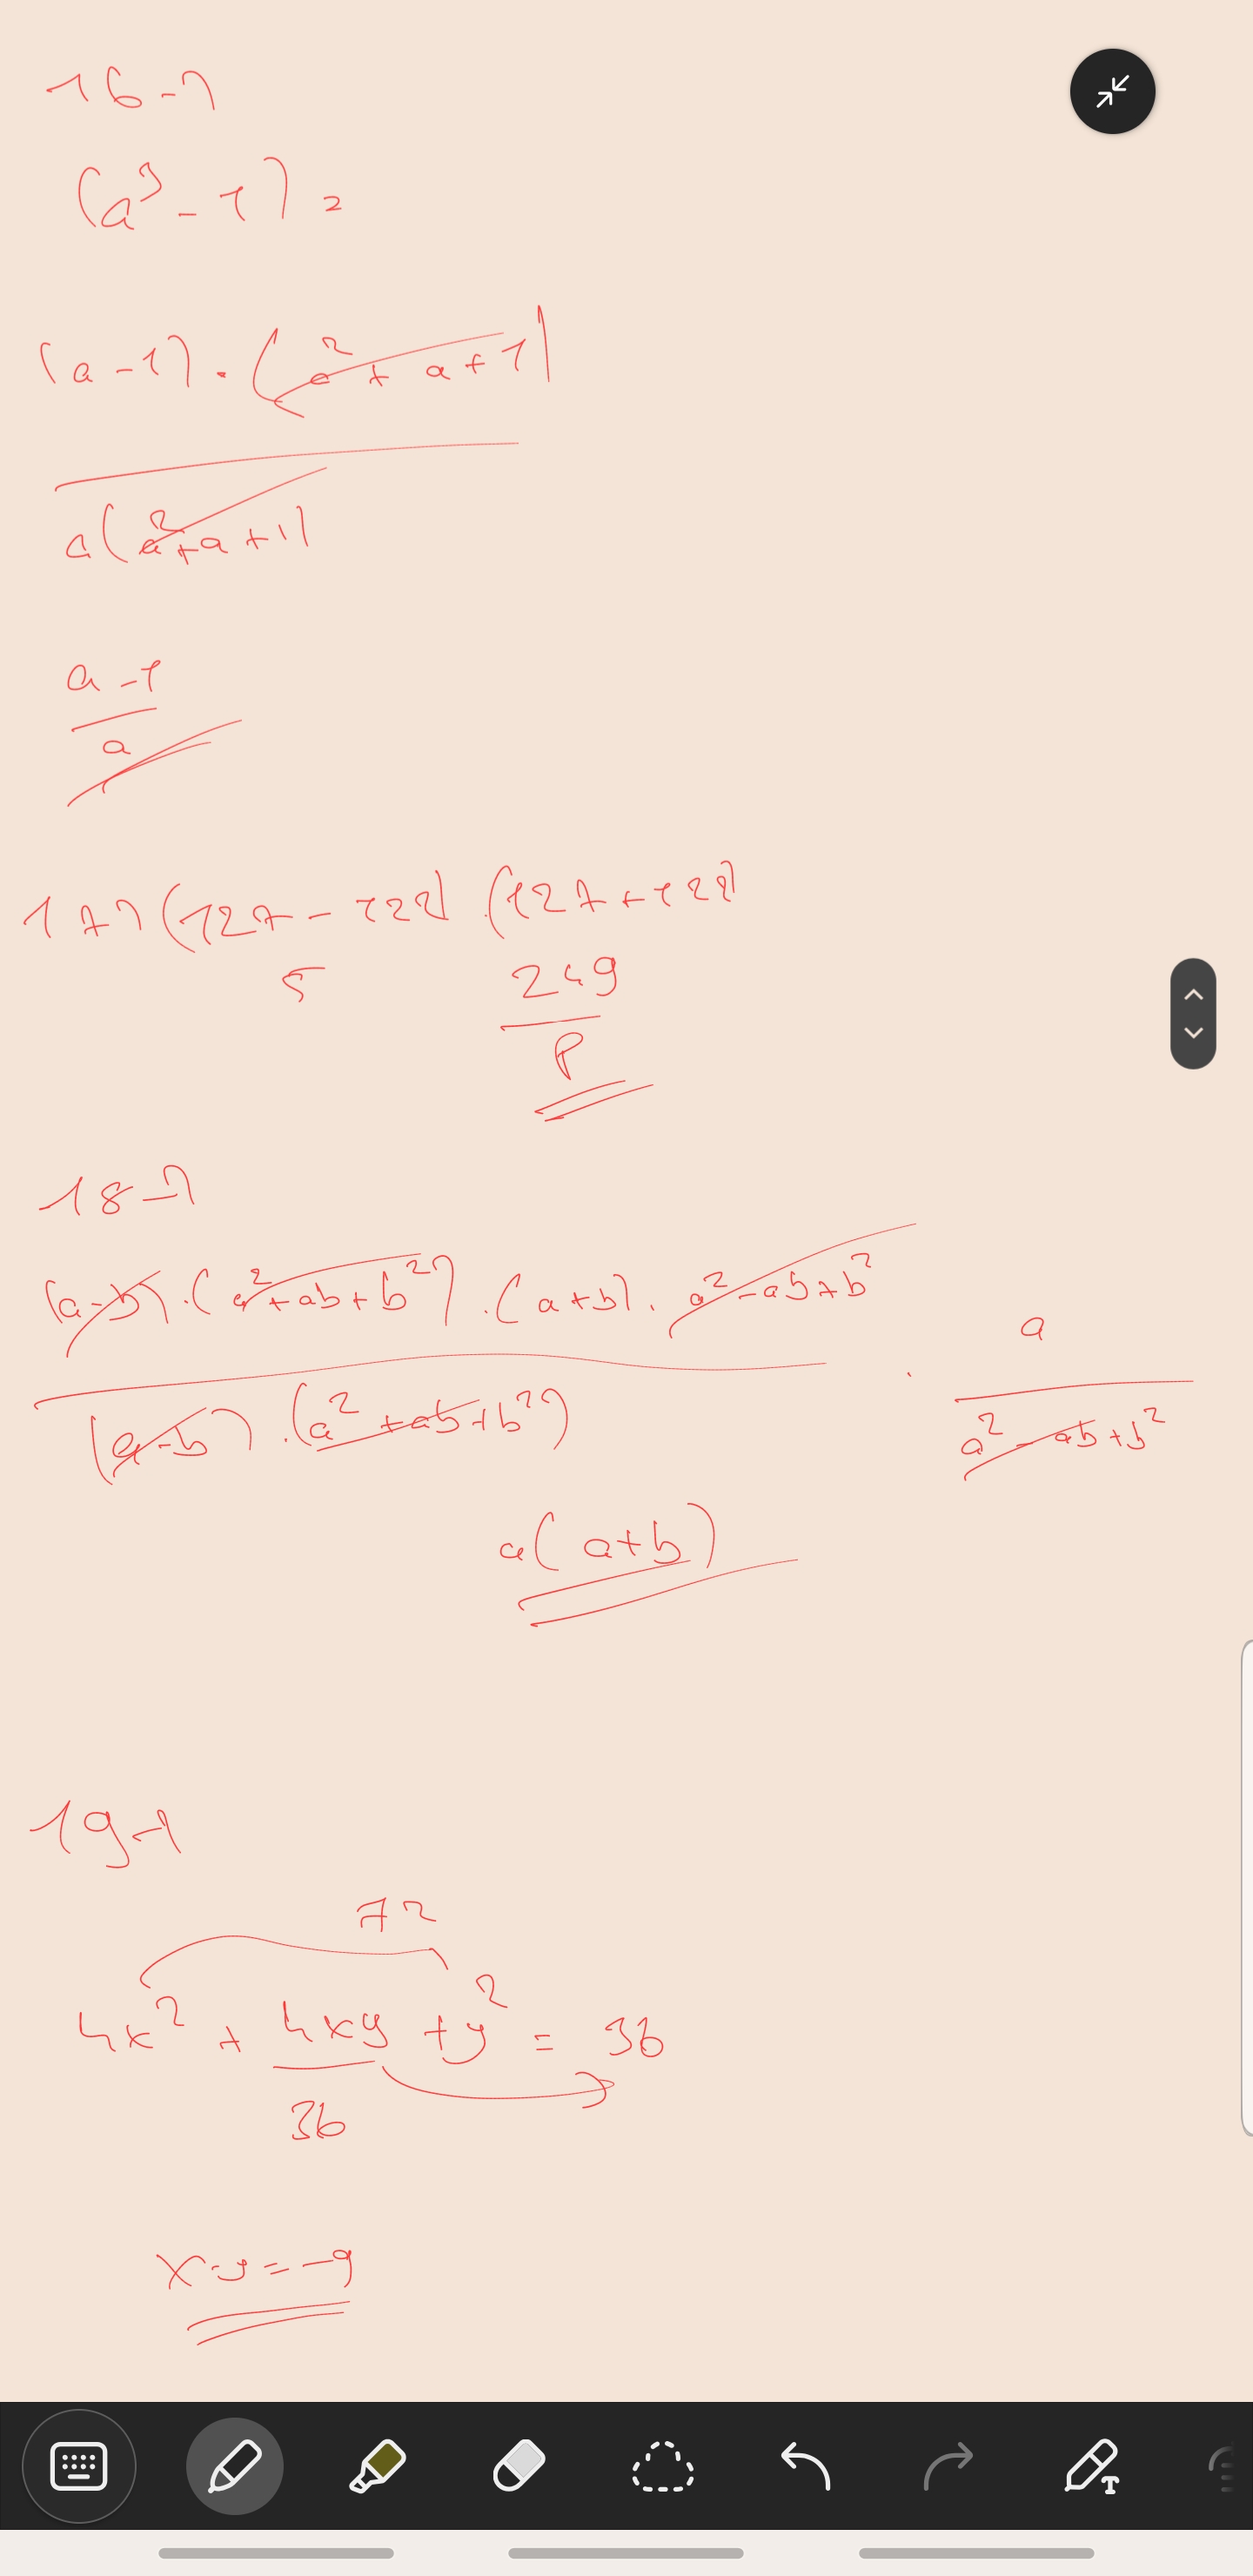 16-)
(a³ - 1) =
(a - 1) . (a² + a + 1)
a(a² + a + 1)
a - 1
a
17-) (127 - 122) . (127 + 122)
5 249
P
18-)
(a - b) . (a² + ab + b²) . (a + b) . a² - ab + b²
a
(a - b) . (a² + ab + b²) . a² - ab + b²
a(a + b)
19-)
72
4x² + 4xy + y² = 36
36
x.y = -9